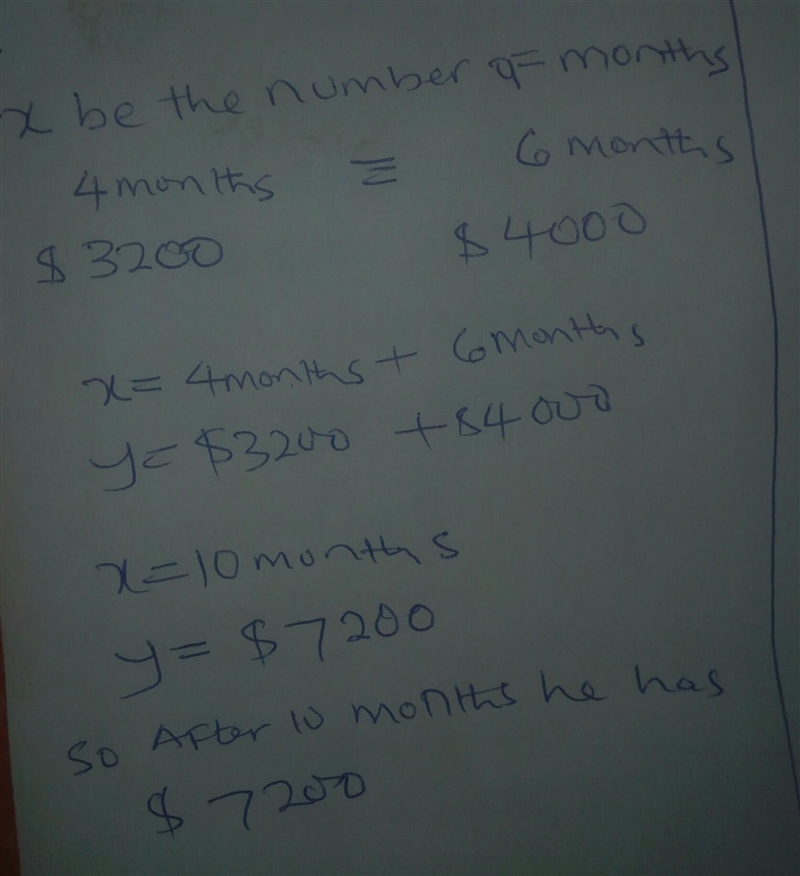 x be the number of months
4 months ≡ 6 months
$ 3200 $ 4000
x = 4 months + 6 months
y = $3200 + $4000
x = 10 months
y = $ 7200
So After 10 months he has
$ 7200